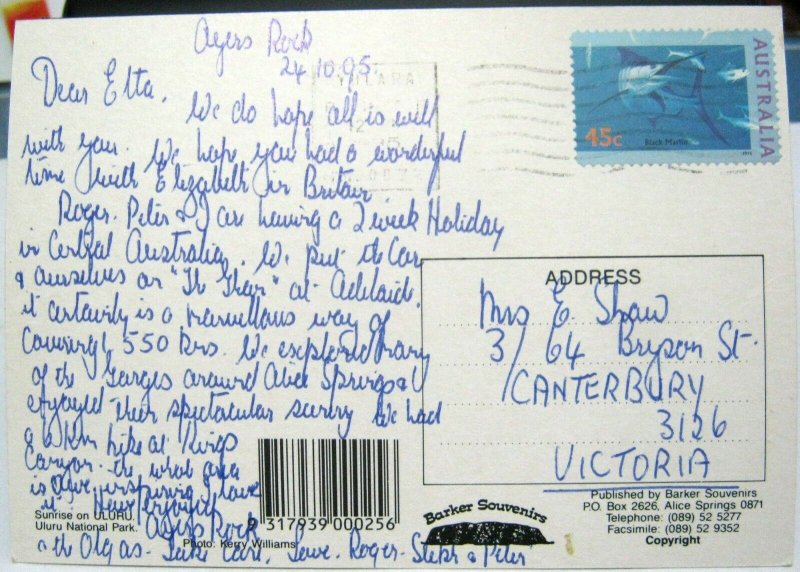 Ayers Rock
24.10.95.
Dear Etta,
We do hope all is well
with you. We hope you had a wonderful
time with Elizabeth in Britain
Roger, Peter & I are having a 2 week Holiday
in Central Australia. We put the Car
& ourselves on "The Ghan" at Adelaide.
it certainly is a marvellous way of
1,550 Kms. We explored many
of the Gorges around Alice Springs &
enjoyed their spectacular scenery We had
a 6 km hike at Kings
Canyon - the whole area
is awe inspiring & I love
it. Have enjoyed
Ayers Rock
& the Olgas - Take Care, Love. Roger - & Peter
YULARA
AUSTRALIA
45c
Black Marlin
ADDRESS
Mrs E Shaw
3/64 Bryson St.
CANTERBURY
3126
VICTORIA
Sunrise on ULURU
Uluru National Park.
Photo: Kerry Williams
9 317939 000256
Barker Souvenirs
Published by Barker Souvenirs
P.O. Box 2626, Alice Springs 0871
Telephone: (089) 52 5277
Facsimile: (089) 52 9352
Copyright